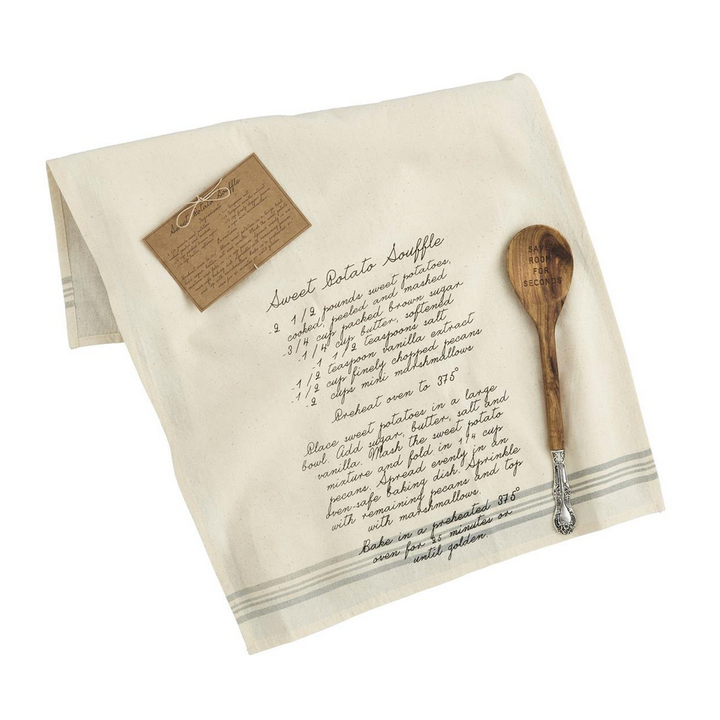 Sweet Potato Souffle
-2 1/2 pounds sweet potatoes,
cooked, peeled and mashed
-3/4 cup packed brown sugar
-1/4 cup butter, softened
-1 1/2 teaspoons salt
-1/2 teaspoon vanilla extract
-1/2 cup finely chopped pecans
-2 cups mini marshmallows
Preheat oven to 375°
Place sweet potatoes in a large
bowl. Add sugar, butter, salt and
vanilla. Mash the sweet potato
mixture and fold in 1/4 cup
pecans. Spread evenly in an
oven-safe baking dish. Sprinkle
with remaining pecans and top
with marshmallows
Bake in a preheated 375°
oven for 25 minutes or
until golden.
SAVE
ROOM
FOR
SECONDS